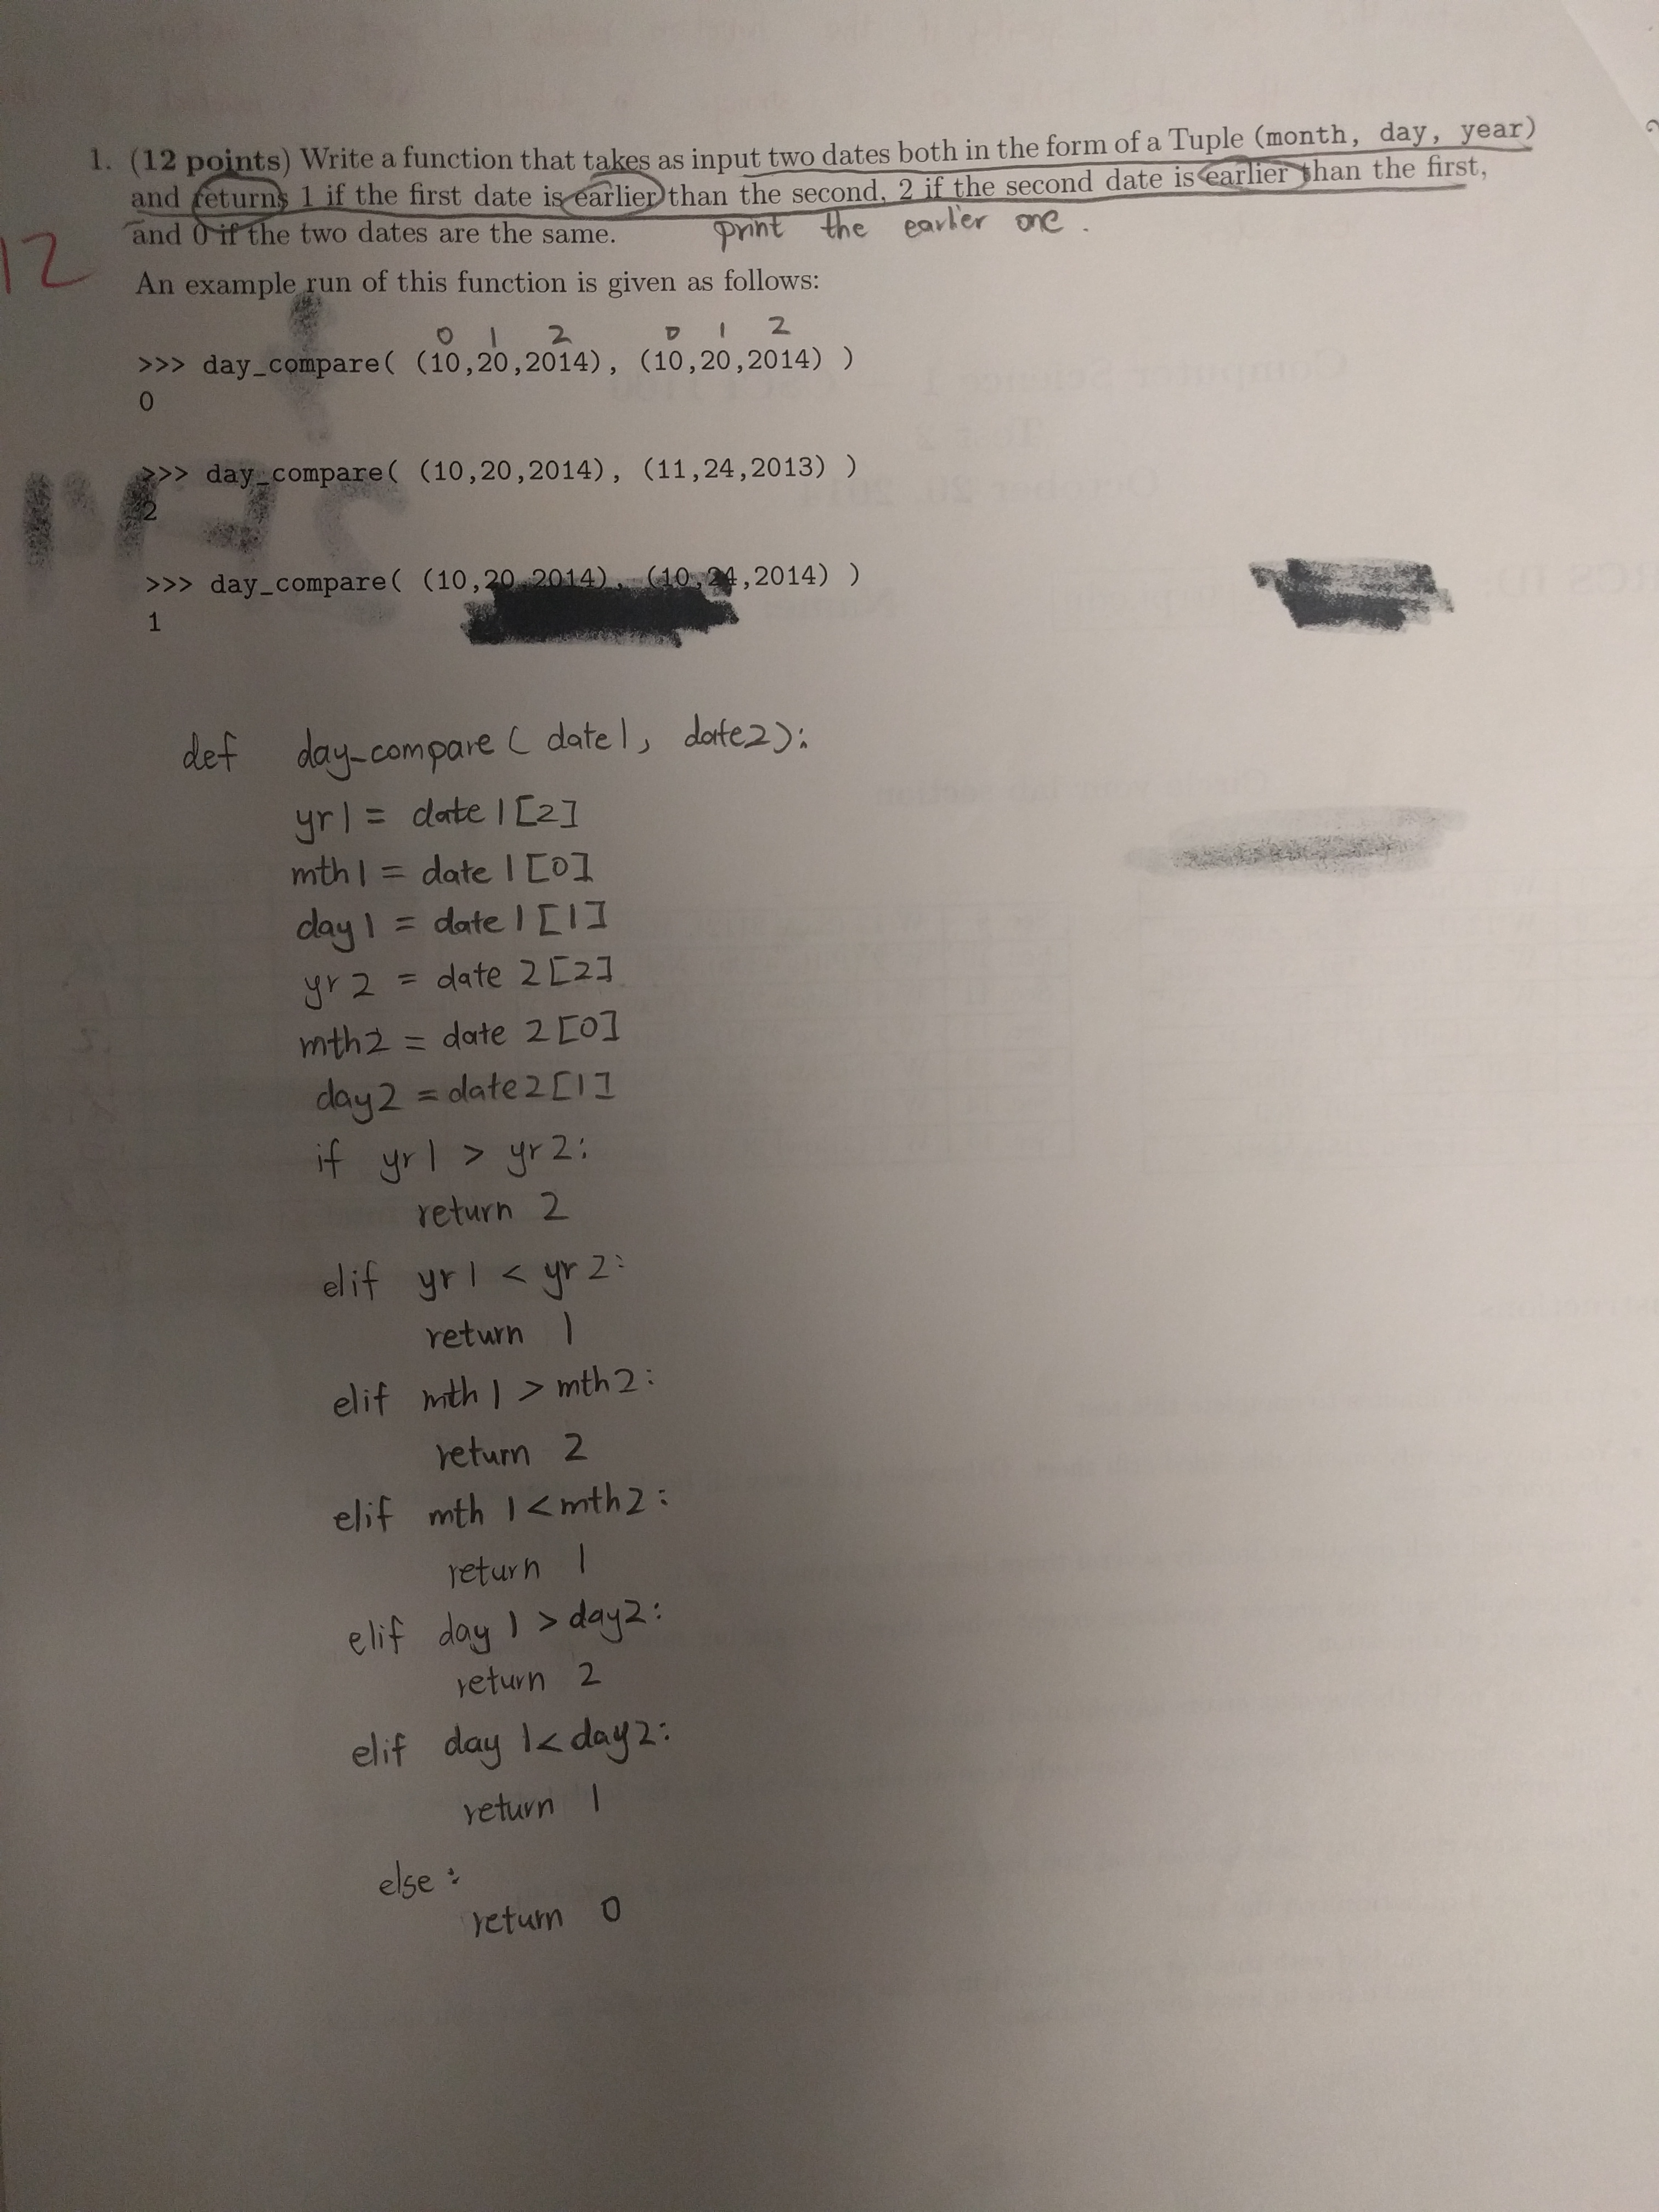 1. (12 points) Write a function that takes as input two dates both in the form of a Tuple (month, day, year)
and returns 1 if the first date is earlier than the second, 2 if the second date is earlier than the first,
and 0 if the two dates are the same. print the earlier one.
12
An example run of this function is given as follows:
0 1 2 0 1 2
>>> day_compare( (10,20,2014), (10,20,2014) )
0
>>> day_compare( (10,20,2014), (11,24,2013) )
2
>>> day_compare( (10,20,2014), (10,24,2014) )
1
def day_compare ( date1, date2):
yr1 = date1[2]
mth1 = date1[0]
day1 = date1[1]
yr2 = date2[2]
mth2 = date2[0]
day2 = date2[1]
if yr1 > yr2:
return 2
elif yr1 < yr2:
return 1
elif mth1 > mth2:
return 2
elif mth1 < mth2:
return 1
elif day1 > day2:
return 2
elif day1 < day2:
return 1
else:
return 0